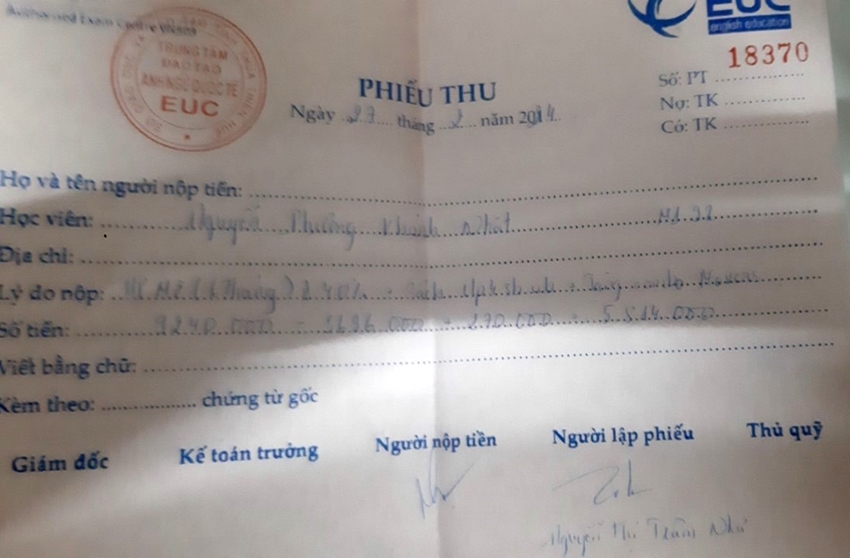 Authorised Exam Centre VN508
EUC
english education
TRUNG TÂM
ĐÀO TẠO
ANH NGỮ QUỐC TẾ
EUC
18370
PHIẾU THU
Số: PT
Ngày 27 tháng 2 năm 2014
Nợ: TK
Có: TK
Họ và tên người nộp tiền:
Học viên: Nguyễn Phương Khánh Nhật
Địa chỉ:
Lý do nộp: 40%
Số tiền: 9240.000 - 3696.000 - 270.000 = 5.814.000
Viết bằng chữ:
Kèm theo: chứng từ gốc
Giám đốc Kế toán trưởng Người nộp tiền Người lập phiếu Thủ quỹ
Nguyễn Thị Trâm Như